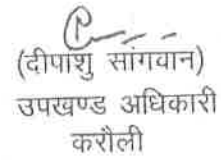 (दीपांशु सांगवान)
उपखण्ड अधिकारी
करौली